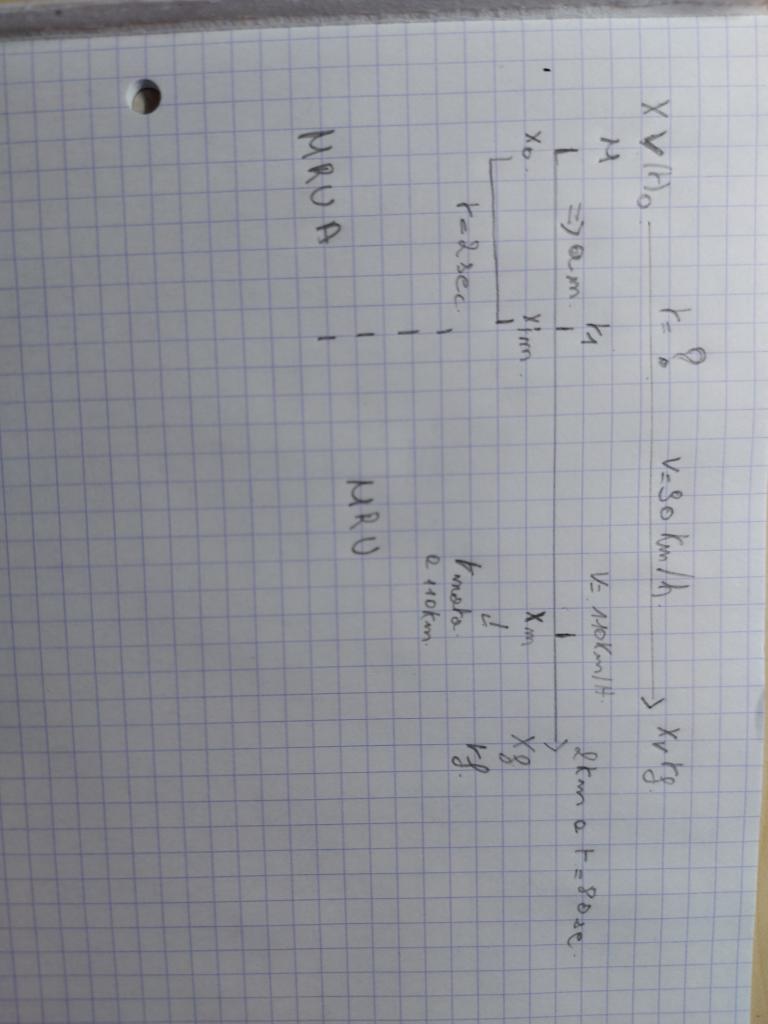 X V(t)0 t = ? V=90 Km/h. Xv tf.
M t1 V= 110Km/H. 2km a t = 80 se.
=> am.
X0. X1m. Xm Xf
t=2sec. tmoto. tf.
a 110km.
MRUA MRU